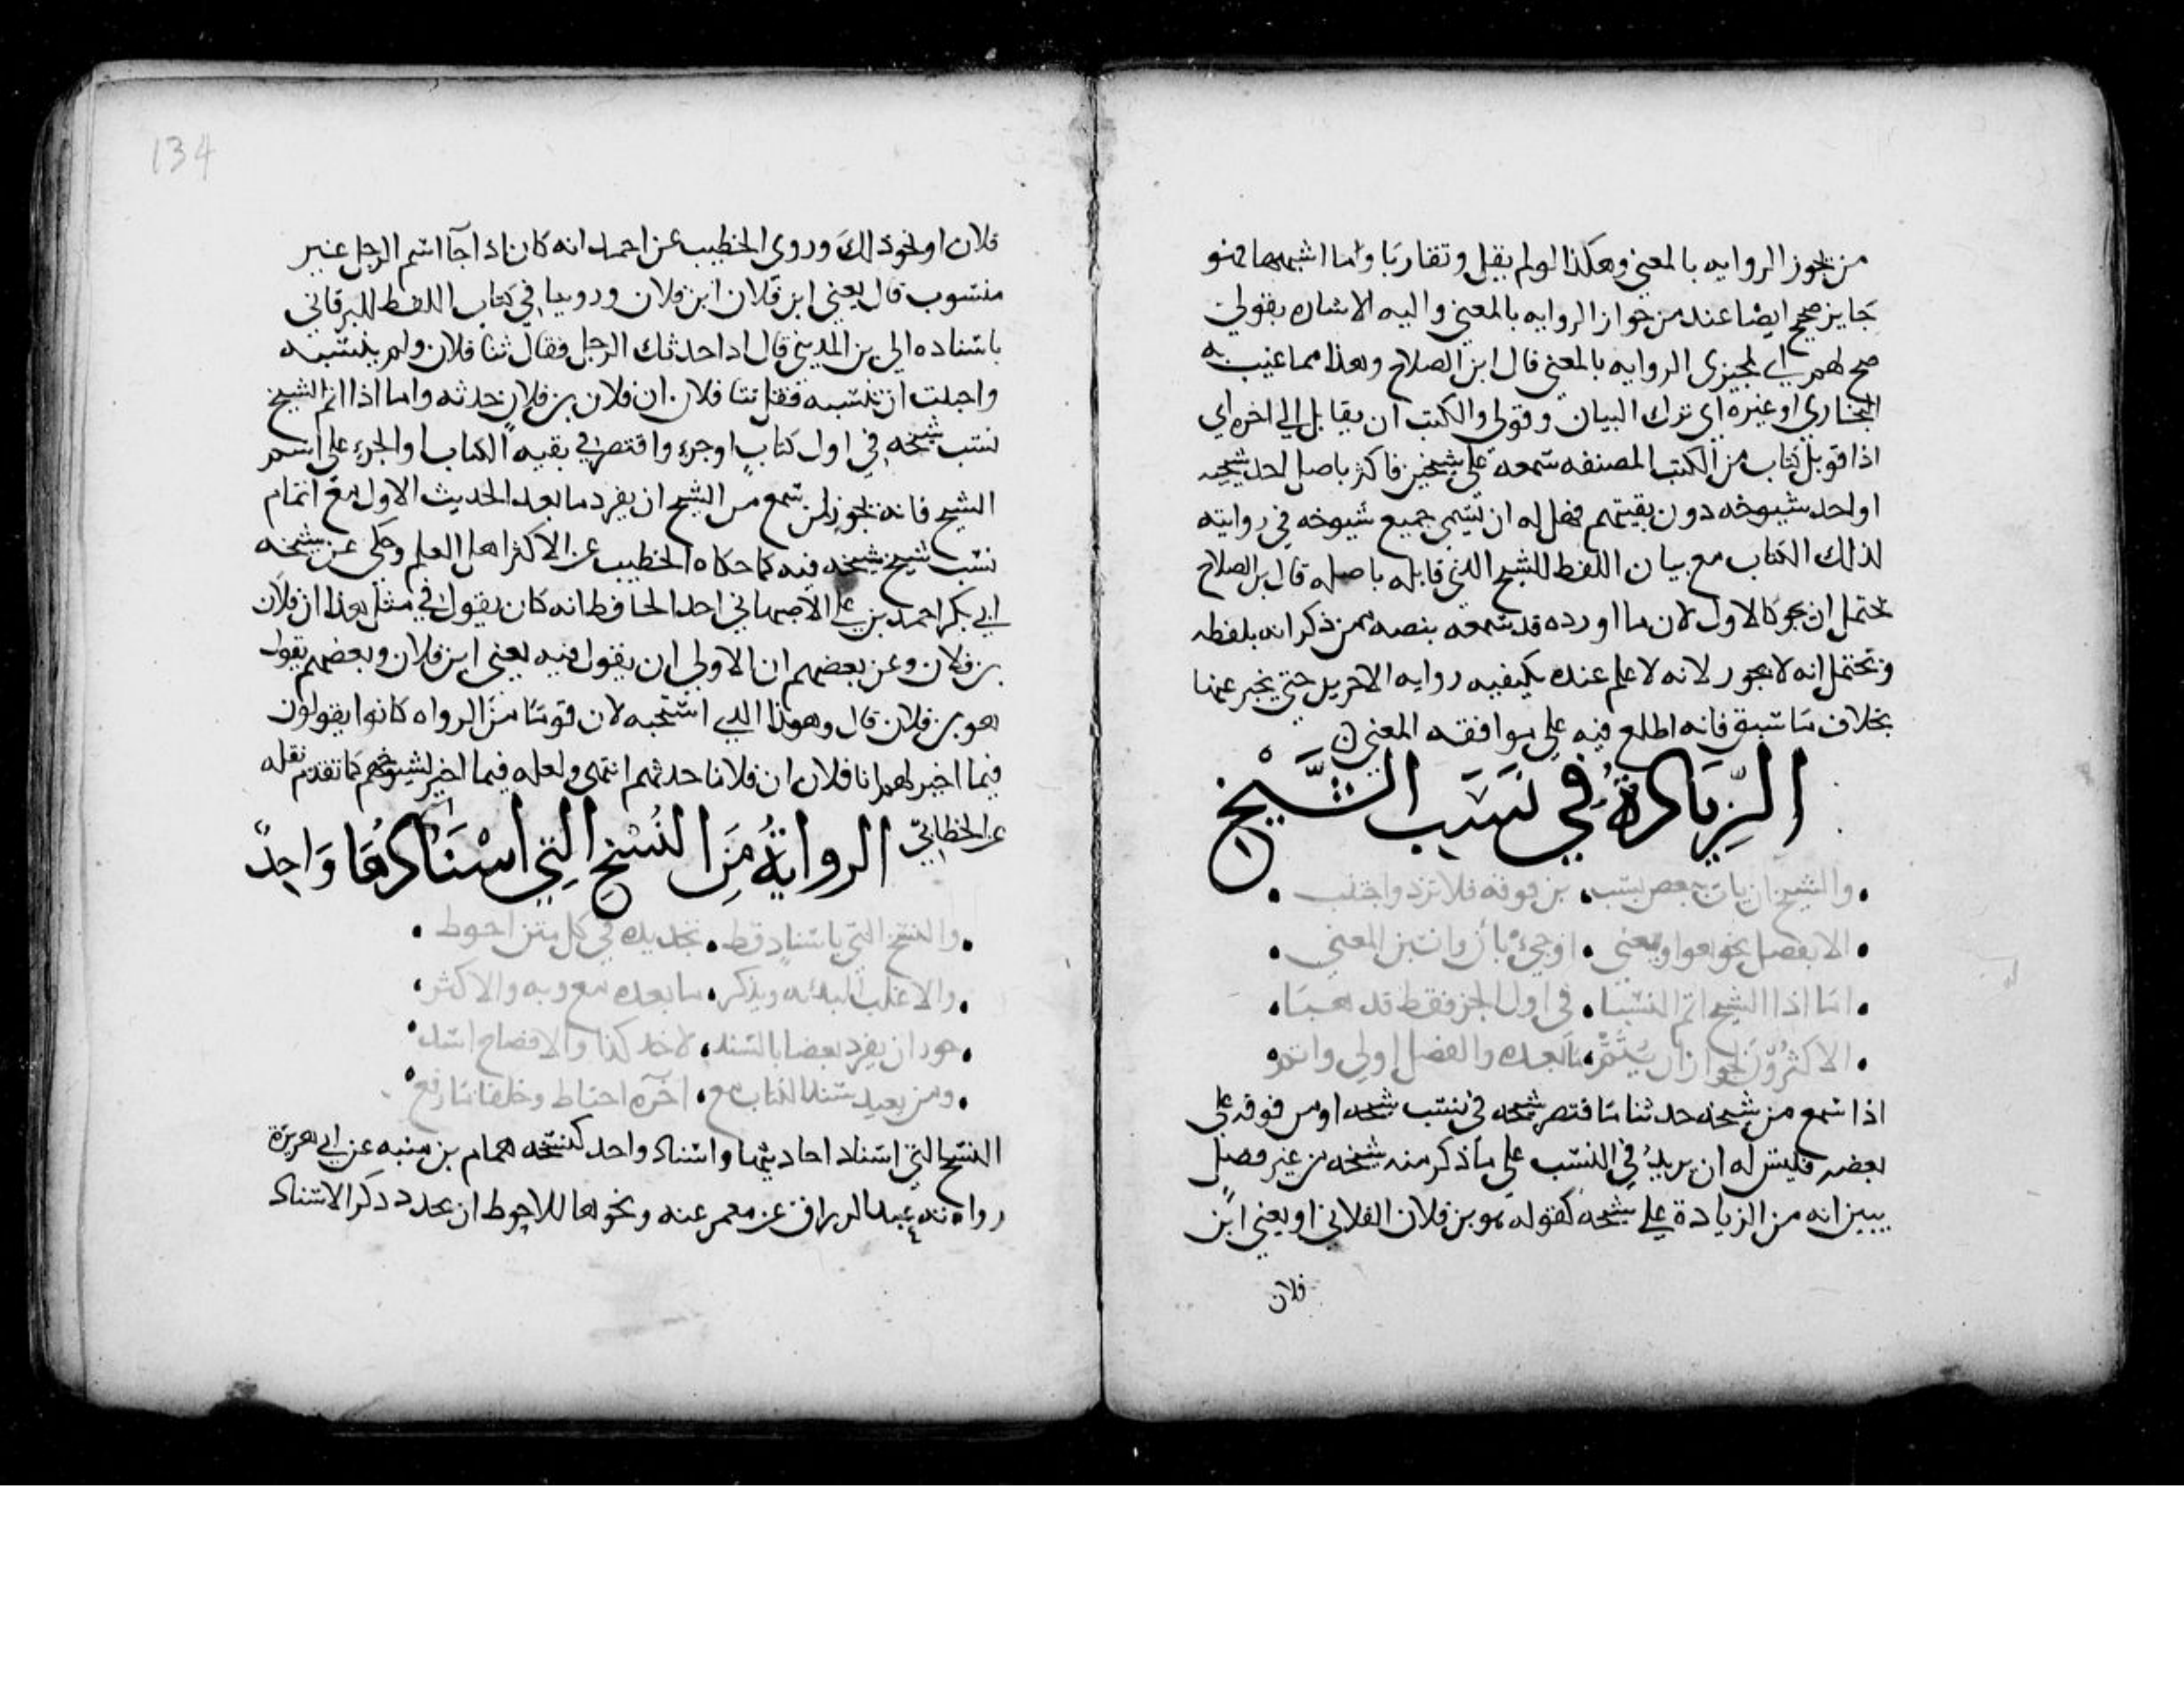 من يجوز الروايه بالمعنى وهكذا لو لم يقل وتقاربا وما اشبهها فهو
جايز صحيح ايضا عند من جواز الروايه بالمعنى واليه الاشاره بقولي
صح لهم اي لمجيزى الروايه بالمعنى قال ابن الصلاح وهذا مما عيب به
البخاري او غيره اي ترك البيان وقولى والكتب ان يقابل الي اخره اي
اذا قوبل كتاب من الكتب المصنفه سمعه على شيخين فاكثر باصل احد شيخيه
او احد شيوخه دون بقيتهم فهل له ان يسمى جميع شيوخه في روايته
لذلك الكتاب مع بيان اللفظ للشيخ الذي قابله باصله قال بن الصلاح
يحتمل ان يجوز كالاول لان ما اورده قد سمعه بنصه ممن ذكر انه بلفظه
ويحتمل انه لا يجوز لانه لا علم عنده بكيفيه روايه الاخرين حتى يخبر عنها
بخلاف ما سبق فانه اطلع فيه على موافقه المعنى
الزيادة في نسب الشيخ
والشيخ ان يات ببعض نسب من فوقه فلا تزد واجتنب
الا بفصل نحو هوا ويعني او جئ بأن وانسبن المعنى
اما اذا الشيخ اتم النسبا في اول الجز فقط فذهبا
الاكثرون لجواز ان يتم ما بعده والفصل اولى واتم
اذا سمع من شيخه حدثنا ما اقتصر شيخه في نسب شيخه او من فوقه على
بعضه فليس له ان يزيد في النسب على ما ذكر منه شيخه من غير فصل
يبين انه من الزيادة على شيخه كقوله هو بن فلان الفلاني او يعني ابن
فلان
134
فلان او نحو ذلك وروي الخطيب عن احمد انه كان اذا جآ اسم الرجل غير
منسوب قال يعني ابن فلان ابن فلان وروينا في كتاب اللفظ للبرقاني
باسناده الى بن المديني قال اذا حدثك الرجل فقال ثنا فلان ولم ينسبه
واحببت ان تنسبه فقل ثنا فلان ان فلان بن فلان حدثه واما اذا اتم الشيخ
نسب شيخه في اول كتاب او جزء واقتصر في بقيه الكتاب او الجزء على اسم
الشيخ فانه يجوز لمن سمع من الشيخ ان يفرد ما بعد الحديث الاول مع اتمام
نسب شيخ شيخه فيه كما حكاه الخطيب عن الاكثر اهل العلم وحكى عن شيخه
ابي بكر احمد بن علي الاصبهاني احد الحافظ انه كان يقول في مثل هذا ان فلان
بن فلان وعن بعضهم ان الاولي ان يقول فيه يعني ابن فلان وبعضهم يقول
هو بن فلان قال وهوذا الذي استحبه لان قوما من الرواه كانوا يقولون
فيما اخبر لهم انا فلان ان فلانا حدثهم انتهى ولعله فيما اخبر لشيوخهم كما تقدم نقله
عن الخطابي الرواية من النسخ التي اسنادها واحد
والنسخ التي باسناد قط تجديده في كل متن احوط
والاغلب البدء به ويذكر ما بعده مع وبه والاكثر
جوز ان يفرد بعضا بالسند لاخذ كذا والافصاح اسد
ومن يعيد سند الكتاب مع اخره احتاط وخلفا ما رفع
النسخ التي اسناد احاديثها واسناد واحد كنسخه همام بن منبه عن ابي هريرة
رواه عبد الرزاق عن معمر عنه ونحوها للاحوط ان يجدد ذكر الاسناد